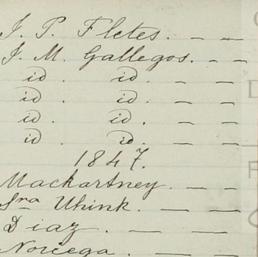 J. P. Fletes. — —
J. M. Gallegos. — —
id . id . — —
id . id . — —
id . id . — —
id . id . — —
1847.
Mackartney. — —
Sra Uhink. — —
Diaz . — —
Noriega . — —